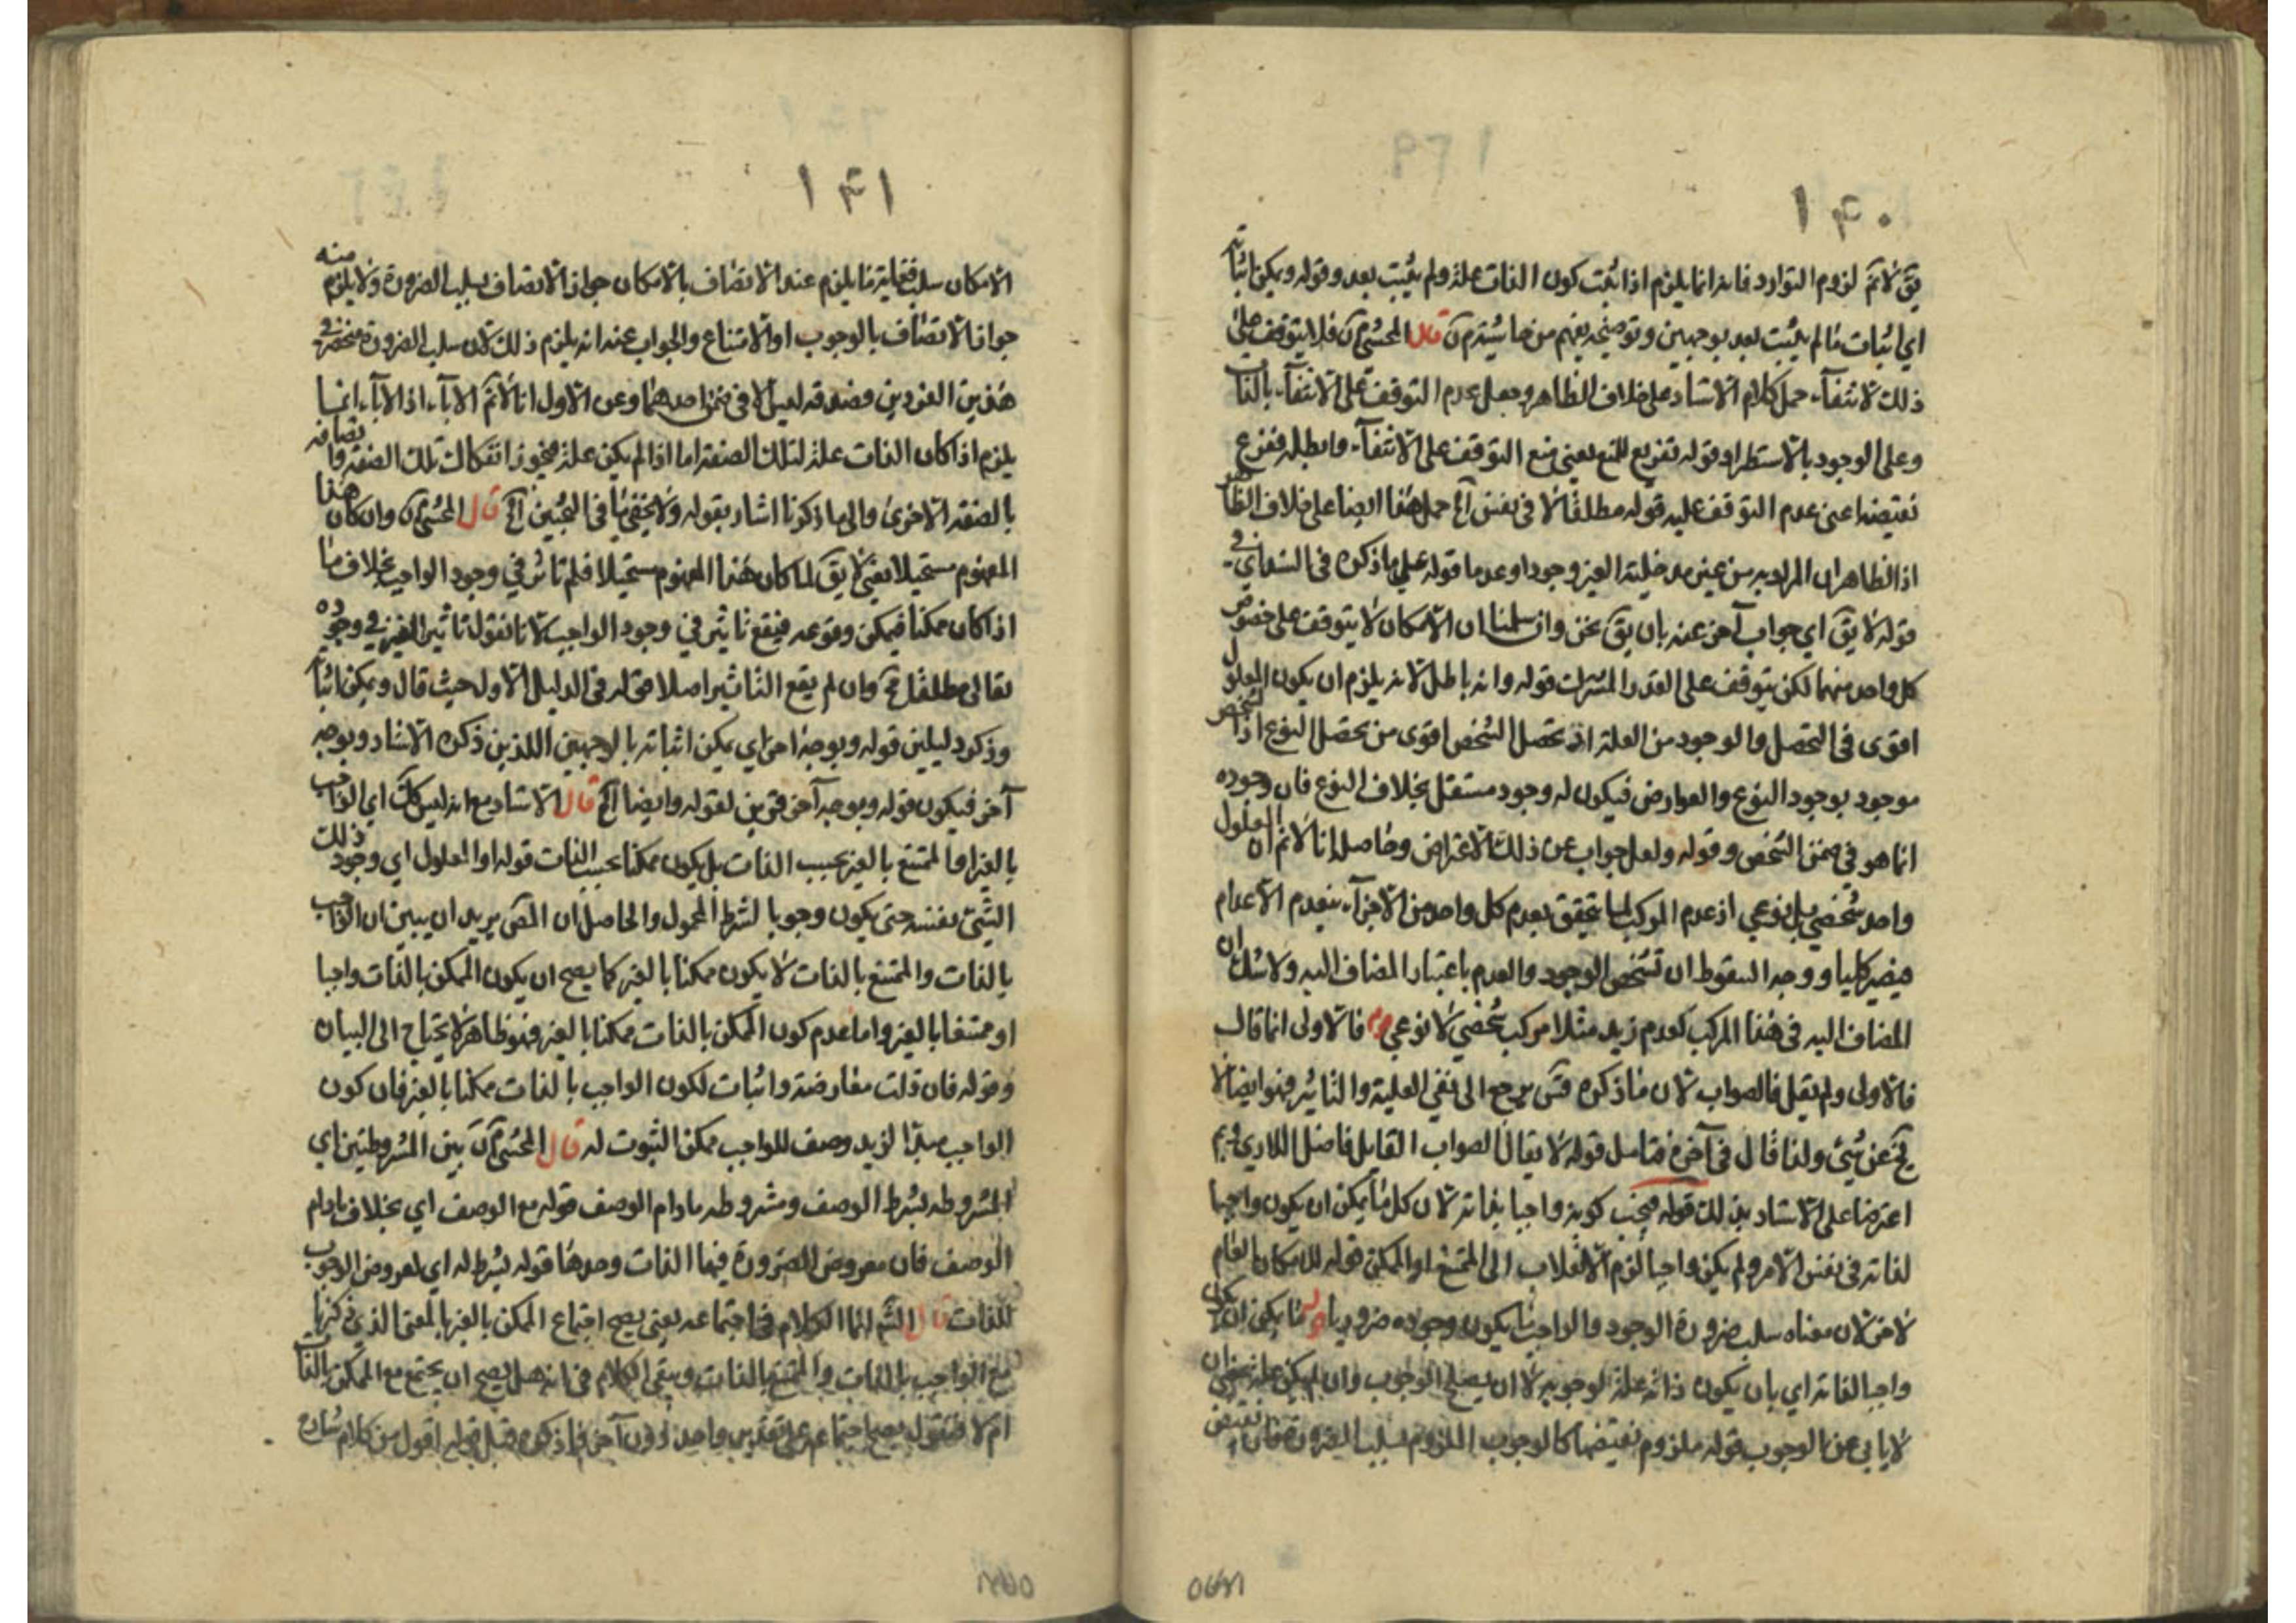 ١٤٠
يق لا نم لزوم التوارد فانه انما يلزم اذا ثبت كون الذات علة ولم يثبت بعد وقوله ويمكن اثباته
اي اثبات ما لم يثبت بعد بوجهين وتوضيحه يفهم من حاشيته قال المحشي فلا يتوقف على
ذلك الانتفآء حمل كلام الاستاد على خلاف الظاهر وجعل عدم التوقف على الانتفآء بالذات
وعلى الوجود بالاستطراد وقوله تفريع للمنع يعني منع التوقف على الانتفآء وابطله ففرع
نقيضه اعني عدم التوقف عليه قوله مطلقا لا في نفس حمل هذا ايضا على خلاف الظاهر
اذ الظاهر ان المراد به من غير مدخلية الغير وجودا وعدما قوله على ما ذكره في
قوله لا يق اي جواب آخر عنه بان يق نحن وان سلمنا ان الامكان لا يتوقف على خصوص
كل واحد منهما لكن يتوقف على القدر المشترك قوله وانه باطل لانه يلزم ان يكون المعلول
اقوى في التحصل والوجود من العلة اذ تحصل الشخص اقوى من تحصل النوع اذ الشخص
موجود بوجود النوع والعوارض فيكون له وجود مستقل بخلاف النوع فان وجوده
انما هو في ضمن الشخص وقوله ولعل جواب عن ذلك الاعتراض وحاصله انا لا نم ان المعلول
واحد شخصي بل نوعي اذ عدم المركب لما تحقق بعدم كل واحد من الاجزآء بتعدم الاعدام
فيصير كليا ووجه السقوط ان تشخص الوجود والعدم باعتبار المضاف اليه ولا شك ان
المضاف اليه في هذا المركب كعدم زيد مثلا مركب شخصي لا نوعي فالاولى انما قال
فالاولى ولم يقل فالصواب لان ما ذكره يرجع الى نفي العلية والتاثير فهو ايضا لا
يخ عن شيء ولذا قال في آخره فتامل قوله لا يقال الصواب القايل فاضل اللاري
اعترضا على الاستاد بذلك قوله فيجب كونه واجبا بذاته لان كل ما يمكن ان يكون واجبا
لذاته في نفس الامر ولم يكن واجبا لزم الانقلاب الى الممتنع او الممكن قوله للامكان العام
لان معناه سلب ضرورة الوجود والواجب ما يكون وجوده ضروريا ما يمكن ان يكون
واجبا لذاته اي بان يكون ذاته علة لوجوبه لا ان يصلح الوجوب وان لم يكن علة
لا يابى عن الوجوب قوله ملزوم نقيضها كالوجوب الملزوم لسلب الضرورة فان نقيض
١٤١
الامكان سلب فغاية ما يلزم عند الاتصاف بالامكان جواز الاتصاف بسلب الضرورة ولا يلزم منه
جواز الاتصاف بالوجوب او الامتناع والجواب عنه انه يلزم ذلك لان سلب الضرورة منحصر في
هذين الفردين وصدقه ليس الا في ضمن احدهما وعن الاول انا لا نم الابآء اذ الابآء انما
يلزم اذا كان الذات علة لتلك الصفة اما اذا لم يكن علة فيجوز انفكاك تلك الصفة واتصافه
بالصفة الاخرى والى ما ذكرنا اشار بقوله ولا يخفى ما في البحثين قال المحشي وان كان هذا
المفهوم مستحيلا يعني لا يق لما كان هذا المفهوم مستحيلا فلم تاثر في وجود الواجب بخلاف ما
اذا كان ممكنا فيمكن وقوعه فيقع تاثيره في وجود الواجب لانا نقول تاثير الغير في وجوده
تعالى مطلقا وان لم يقع التاثير اصلا قوله في الدليل الاول حيث قال ويمكن اثباته
وذكر دليلين قوله وبوجه آخر اي يمكن اثباته بالوجهين اللذين ذكره الاستاد وبوجه
آخر فيكون قوله وبوجه آخر قرين لقوله وايضا قال الاستاد مع انه ليس كك اي الواجب
بالغير او الممتنع بالغير بحسب الذات بل يكون ممكنا بحسب الذات قوله او المعلول اي وجود ذلك
الشيء نفسه حتى يكون وجوبا لشرط المحمول والحاصل ان المص يريد ان يبين ان الواجب
بالذات والممتنع بالذات لا يكون ممكنا بالغير كما يصح ان يكون الممكن بالذات واجبا
او ممتنعا بالغير واما عدم كون الممكن بالذات ممكنا بالغير فهو ظاهر لا يحتاج الى البيان
وقوله فان قلت معارضة واثبات لكون الواجب بالذات ممكنا بالغير فان كون
الواجب مبدأ لزيد وصف للواجب ممكن الثبوت له قال المحشي بين المشروطتين اي
المشروطة بشرط الوصف ومشروطه مادام الوصف قوله مع الوصف اي بخلاف مادام
الوصف فان معروض الضرورة فيها الذات وحدها قوله بشرط له اي لمعروض الوجوب
للذات قال انما الكلام في اجتماعه يعني يصح اجتماع الممكن بالغير بالمعنى الذي ذكرنا
مع الواجب بالذات والممتنع بالذات وبقي الكلام في انه هل يصح ان يجتمع مع الممكن بالذات
ام لا فنقول يصح اجتماعه على تقدير واحد دون آخر فما ذكره قبل قوله اقول من كلام